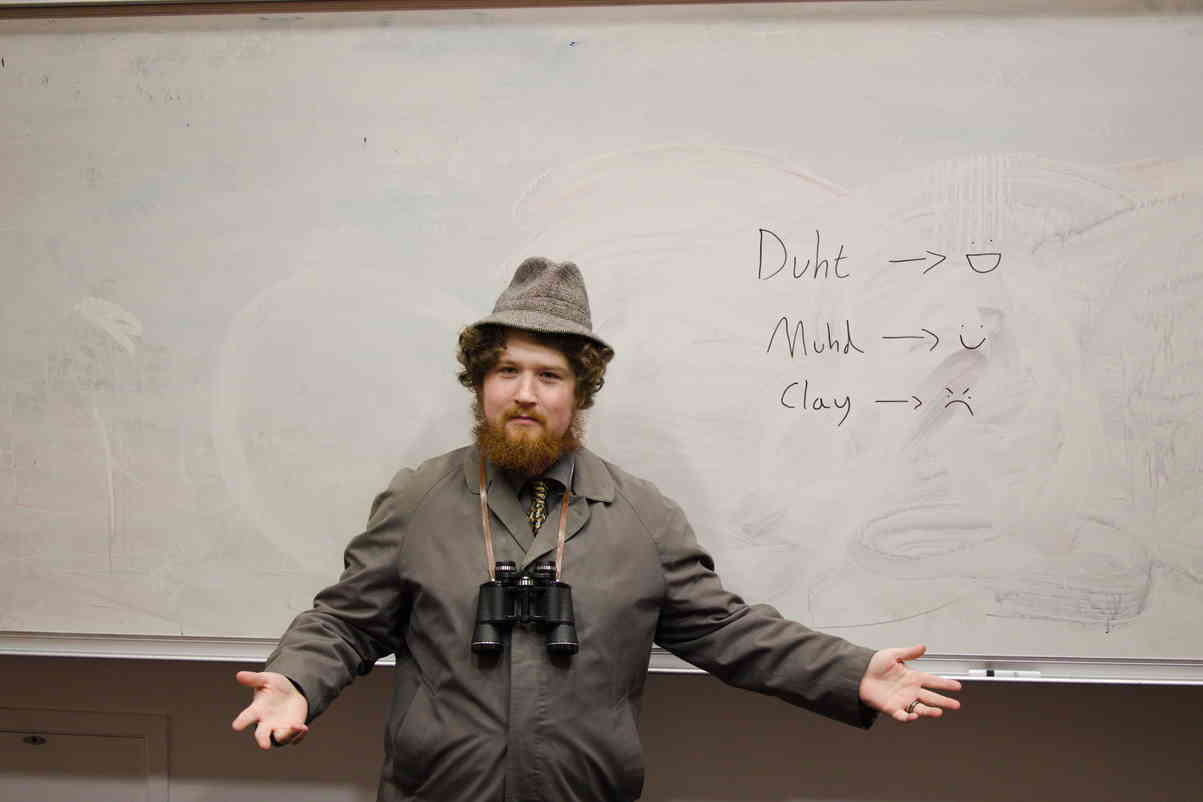 Duht →
Muhd → :)
Clay → >:(